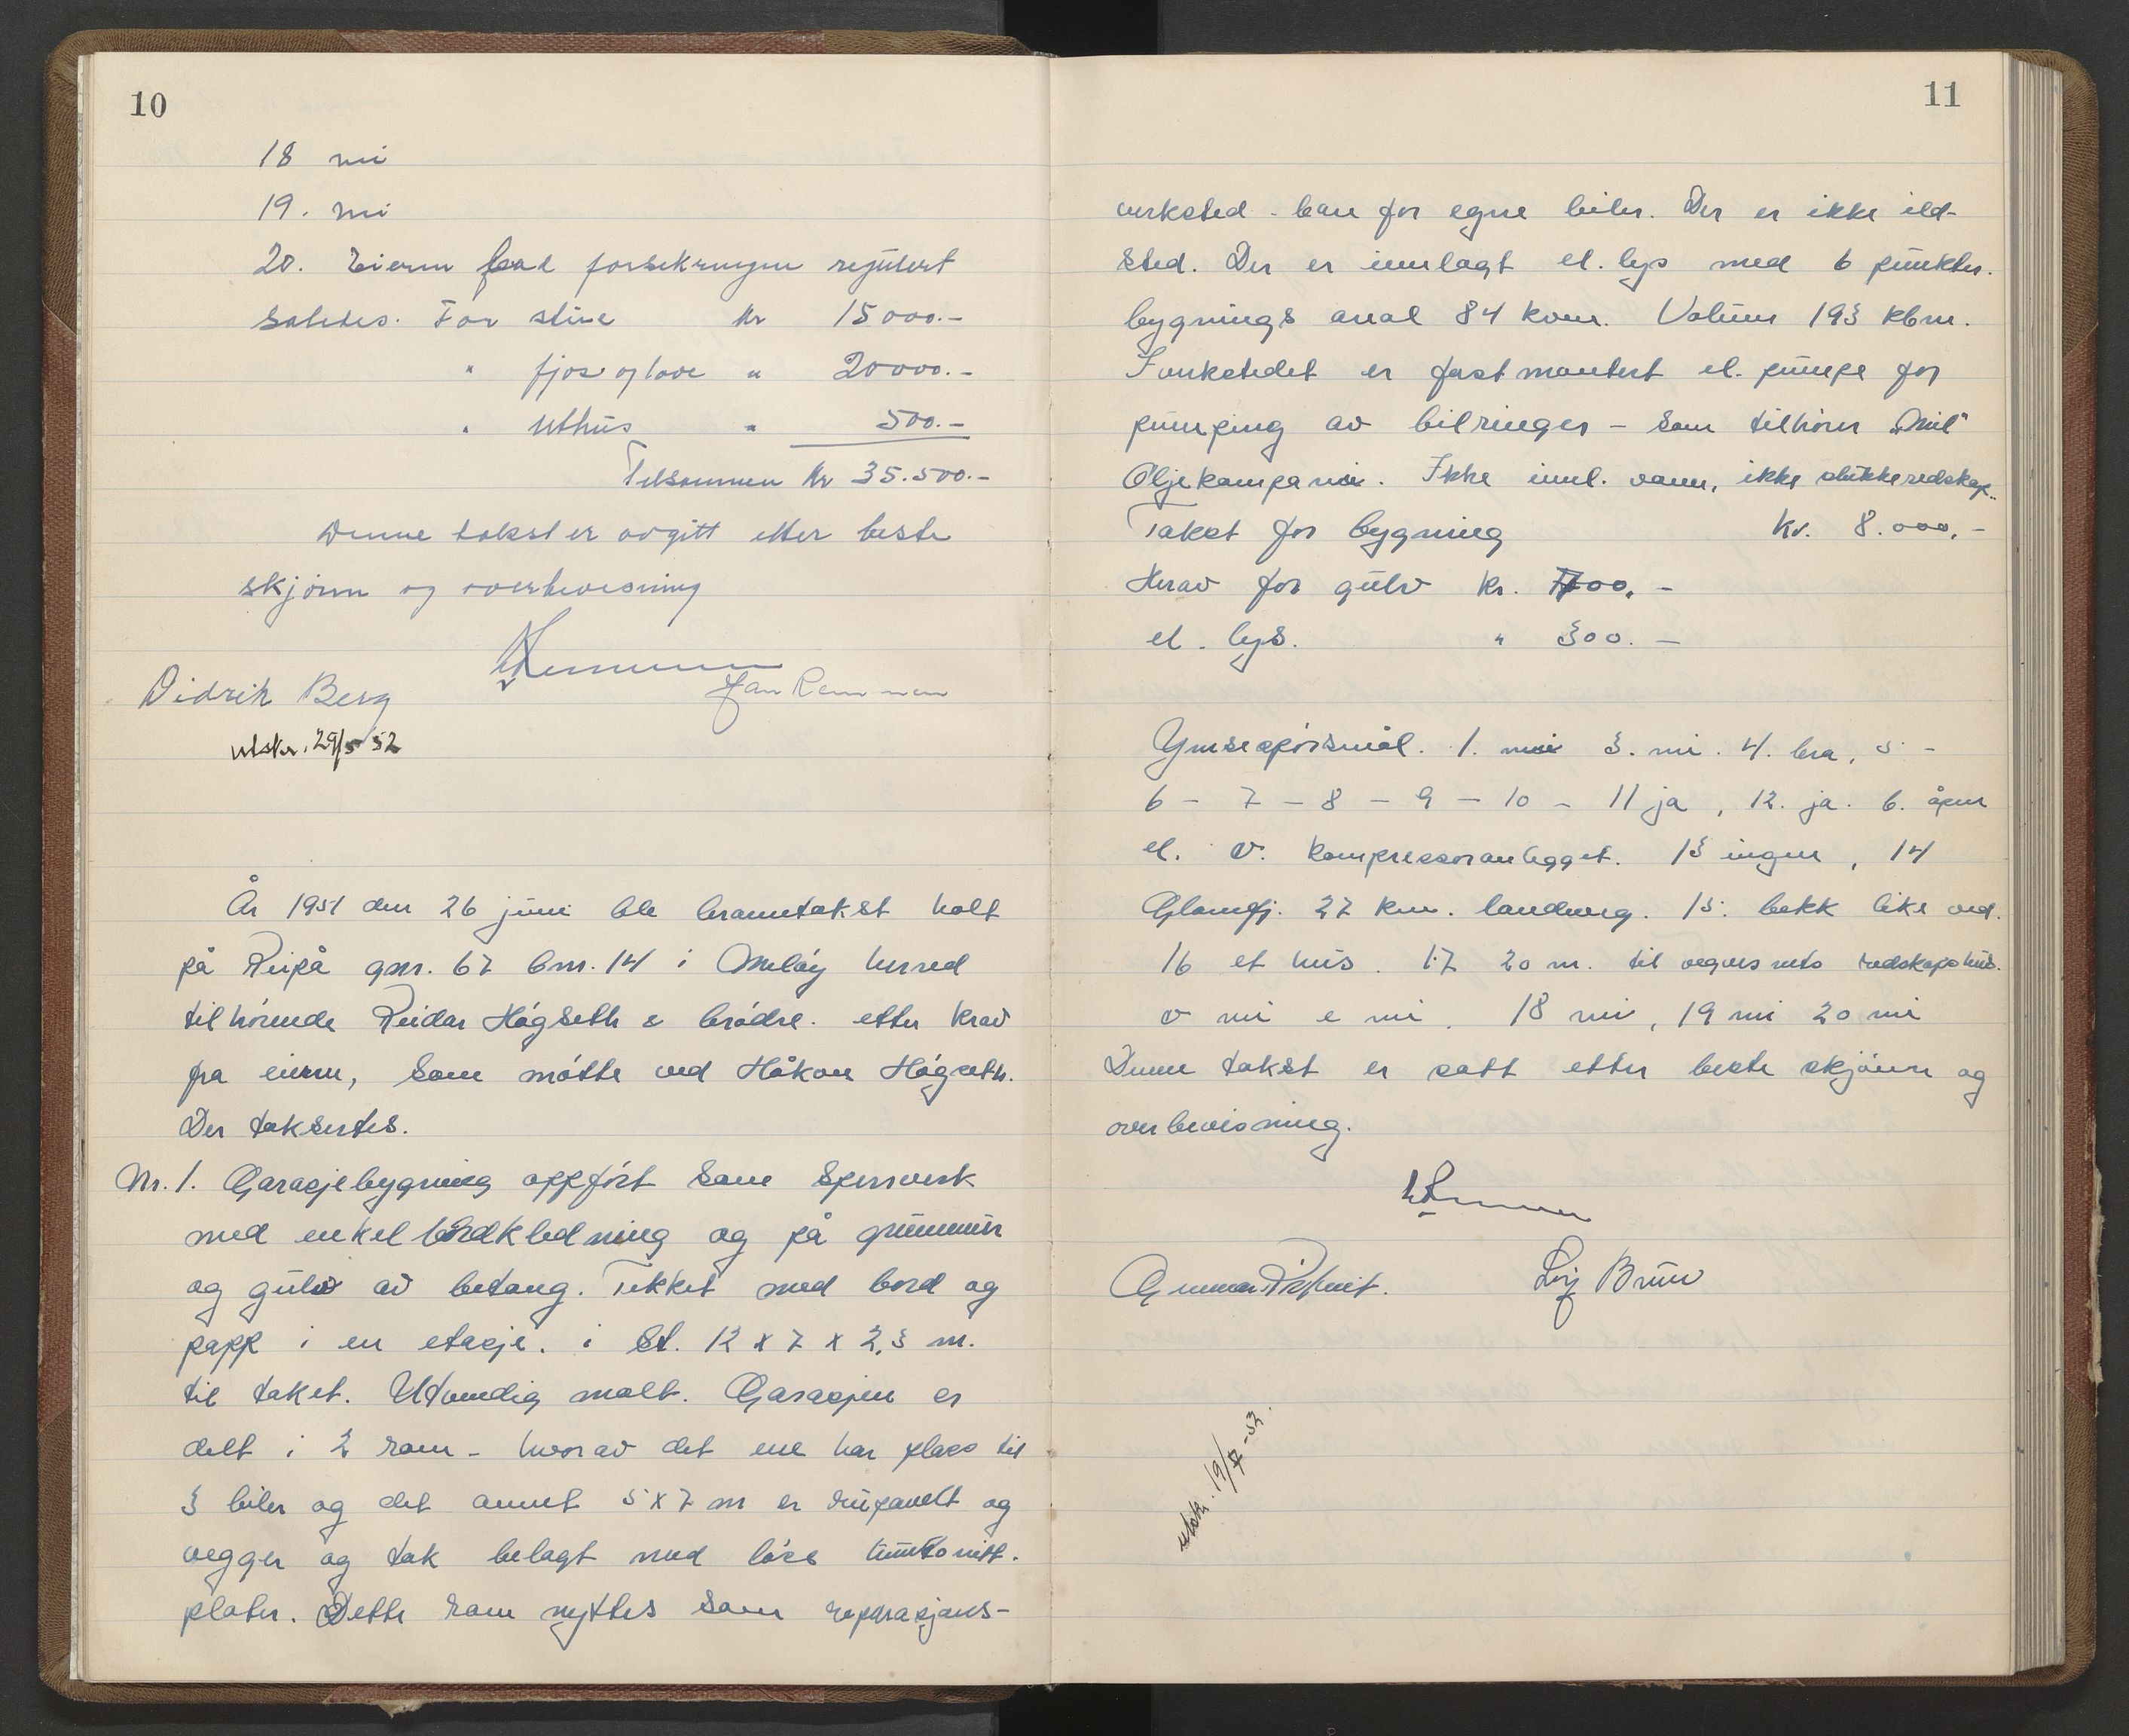 10
18 nei
19. nei
20. Eieren bad forsekringen regulert
således. For stue Kr 15000.-
" fjøs og løve " 20000.-
" Uthus " 500.-
Tilsammen Kr 35.500.-
Denne takst er avgitt etter beste
skjønn og overbevisning
Jan Remmen
Didrik Berg
utskr. 29/5 52
År 1951 den 26 juni ble branntakst holt
på Reipå gnr. 67 bnr. 14 i Meløy herred
tilhørende Reidar Høgseth & brødre. etter krav
fra eieren, som møtte ved Håkon Høgseth.
Der taksertes.
Nr. 1. Garasjebygning oppført som sperrverk
med enkel bordkledning og på grunnmur
og gulv av betong. Tekket med bord og
papp i en etasje. i St. 12 x 7 x 2,3 m.
til taket. Utvendig malt. Garasjen er
delt i 2 rom - hvorav det ene har plass til
3 biler og det annet 5 x 7 m er rupanelt og
vegger og tak belagt med løse huntonitt.
plater. Dette rom nyttes som reparasjons-
11
verksted - bare for egne biler. Der er ikke ild-
sted. Der er innlagt el. lys med 6 punkter.
bygnings areal 84 kvm. Volum 193 kbm.
I verkstedet er fast montert el. pumpe for
pumping av bilringer - som tilhører "Mil"
Oljekompani. Ikke innl. vann, ikke slukkeredskap..
Takst for bygning kr. 8.000,-
Herav for gulv kr. 1700,-
el. lys. " 300.-
Ymse spørsmål. 1. nei 3. nei. 4. bra, 5 -
6 - 7 - 8 - 9 - 10 - 11 ja, 12. ja. b. åpen
el. v. kompressoranlegget. 13 ingen, 14
Glomfj. 27 km. landveg. 15. bekk like ved.
16 et hus. 17 20 m. til vegvesnets redskapshus.
v nei e nei. 18 nei, 19 nei 20 nei
Denne takst er satt etter beste skjønn og
overbevisning.
Gunnar Leif Bruun
utskr. 19/7 - 52.